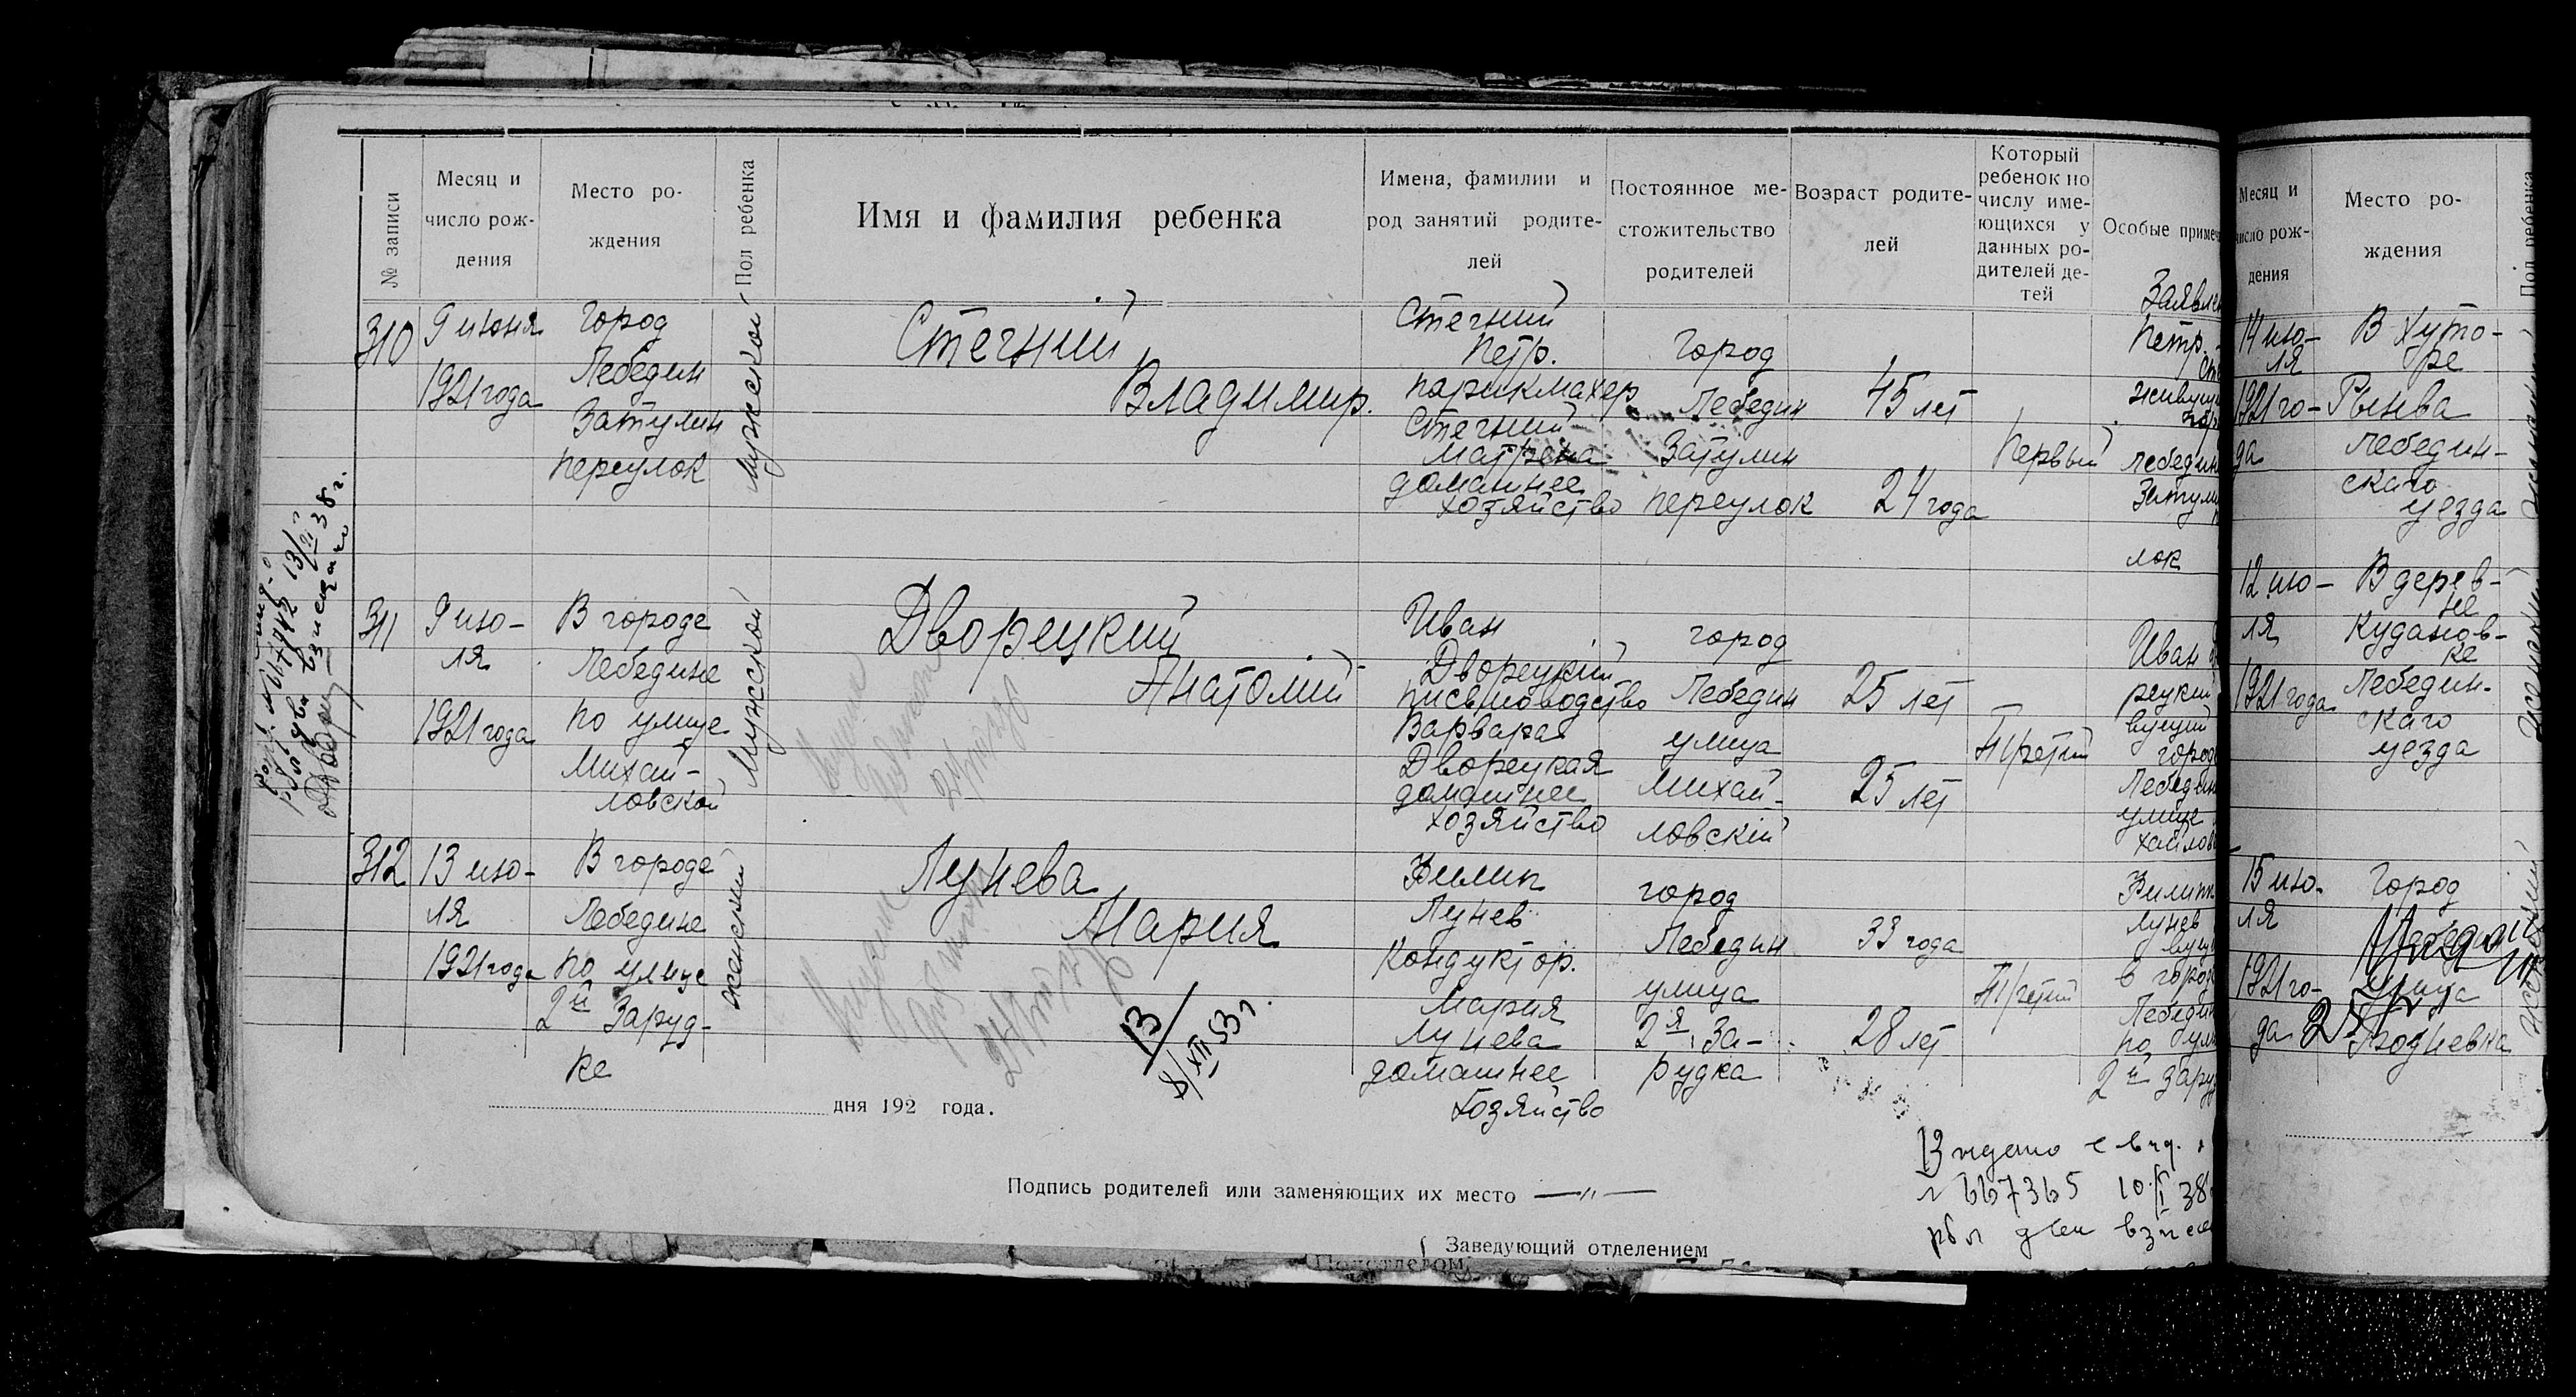 № записи
Месяц и
число рож-
дения
Место ро-
ждения
Пол ребенка
Имя и фамилия ребенка
Имена, фамилии и
род занятий родите-
лей
Постоянное ме-
стожительство
родителей
Возраст родите-
лей
Который
ребенок по
числу име-
ющихся у
данных ро-
дителей де-
тей
Особые
310
9 июня
1921 года
Город
Лебедин
Затулин
переулок
Мужской
Стегний
Владимир.
Стегний
Петр.
парикмахер
Стегний
Матрена
домашнее
хозяйство
Город
Лебедин
Затулин
переулок
45 лет
24 года
Первый
Петр.
лок
311
9 ию-
ля
1921 года
В городе
Лебедине
по улице
Михай-
ловской
Мужской
Дворецкий
Анатолий
Иван
Дворецкий
письмоводство
Варвара
Дворецкая
домашнее
хозяйство
город
Лебедин
улица
Михай-
ловский
25 лет
25 лет
Третий
Иван
рецкий
вущий
312
13 ию-
ля
1921 года
В городе
Лебедине
по улице
2й Заруд-
ке
женский
Лунева
Мария
13/
8/XII 53 г.
Филип
Лунев
Кондуктор.
Мария
Лунева
домашнее
хозяйство
город
Лебедин
улица
2я За-
рудка
33 года
28 лет
Третий
Лунев
в
по
2й
дня 192 года.
Подпись родителей или заменяющих их место —"—
Заведующий отделением
Выдано
667365 10
38
Месяц и
число рож-
дения
Место ро-
ждения
Пол ребенка
14 ию-
ля
1921 го-
да
В хуто-
ре
Лебедин-
скаго
уезда
12 ию-
ля
1921 года
В дерев-
не
Куданов-
ке
Лебедин-
скаго
уезда
Женский
15 ию-
ля
1921 го-
да
Город
улица